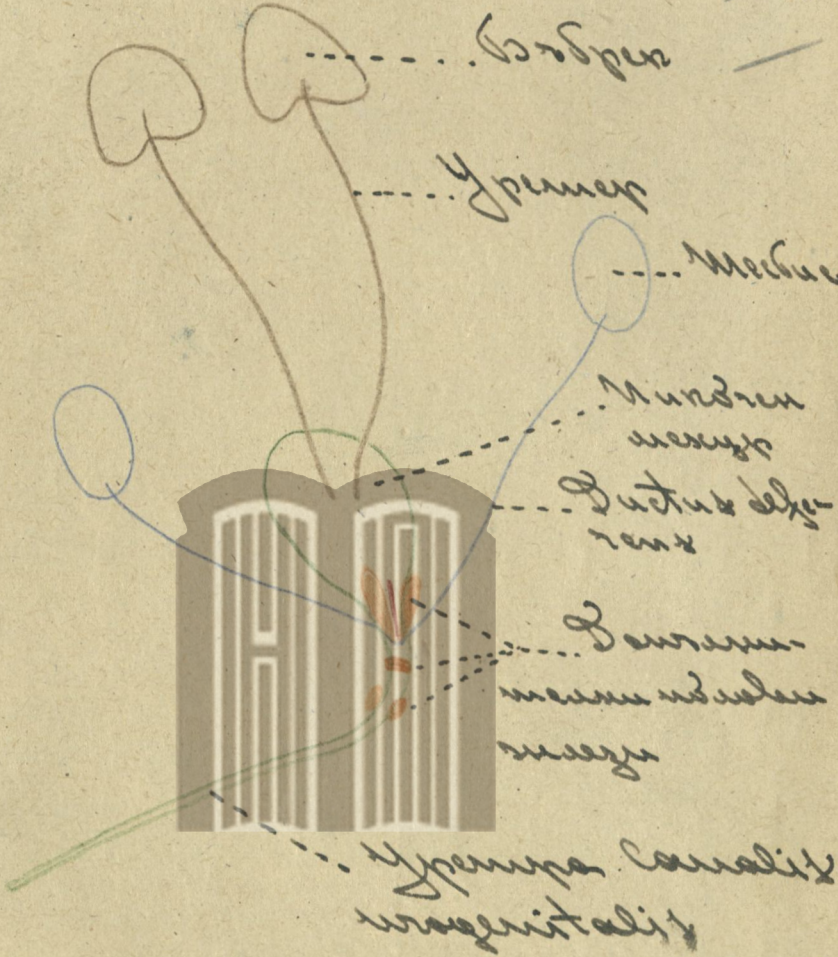 Бъбрек
Уретер
Тести
Пикочен
мехур
Ductus defe-
rens
Допълни-
телни полови
жлези
Уретра Canalis
urogenitalis